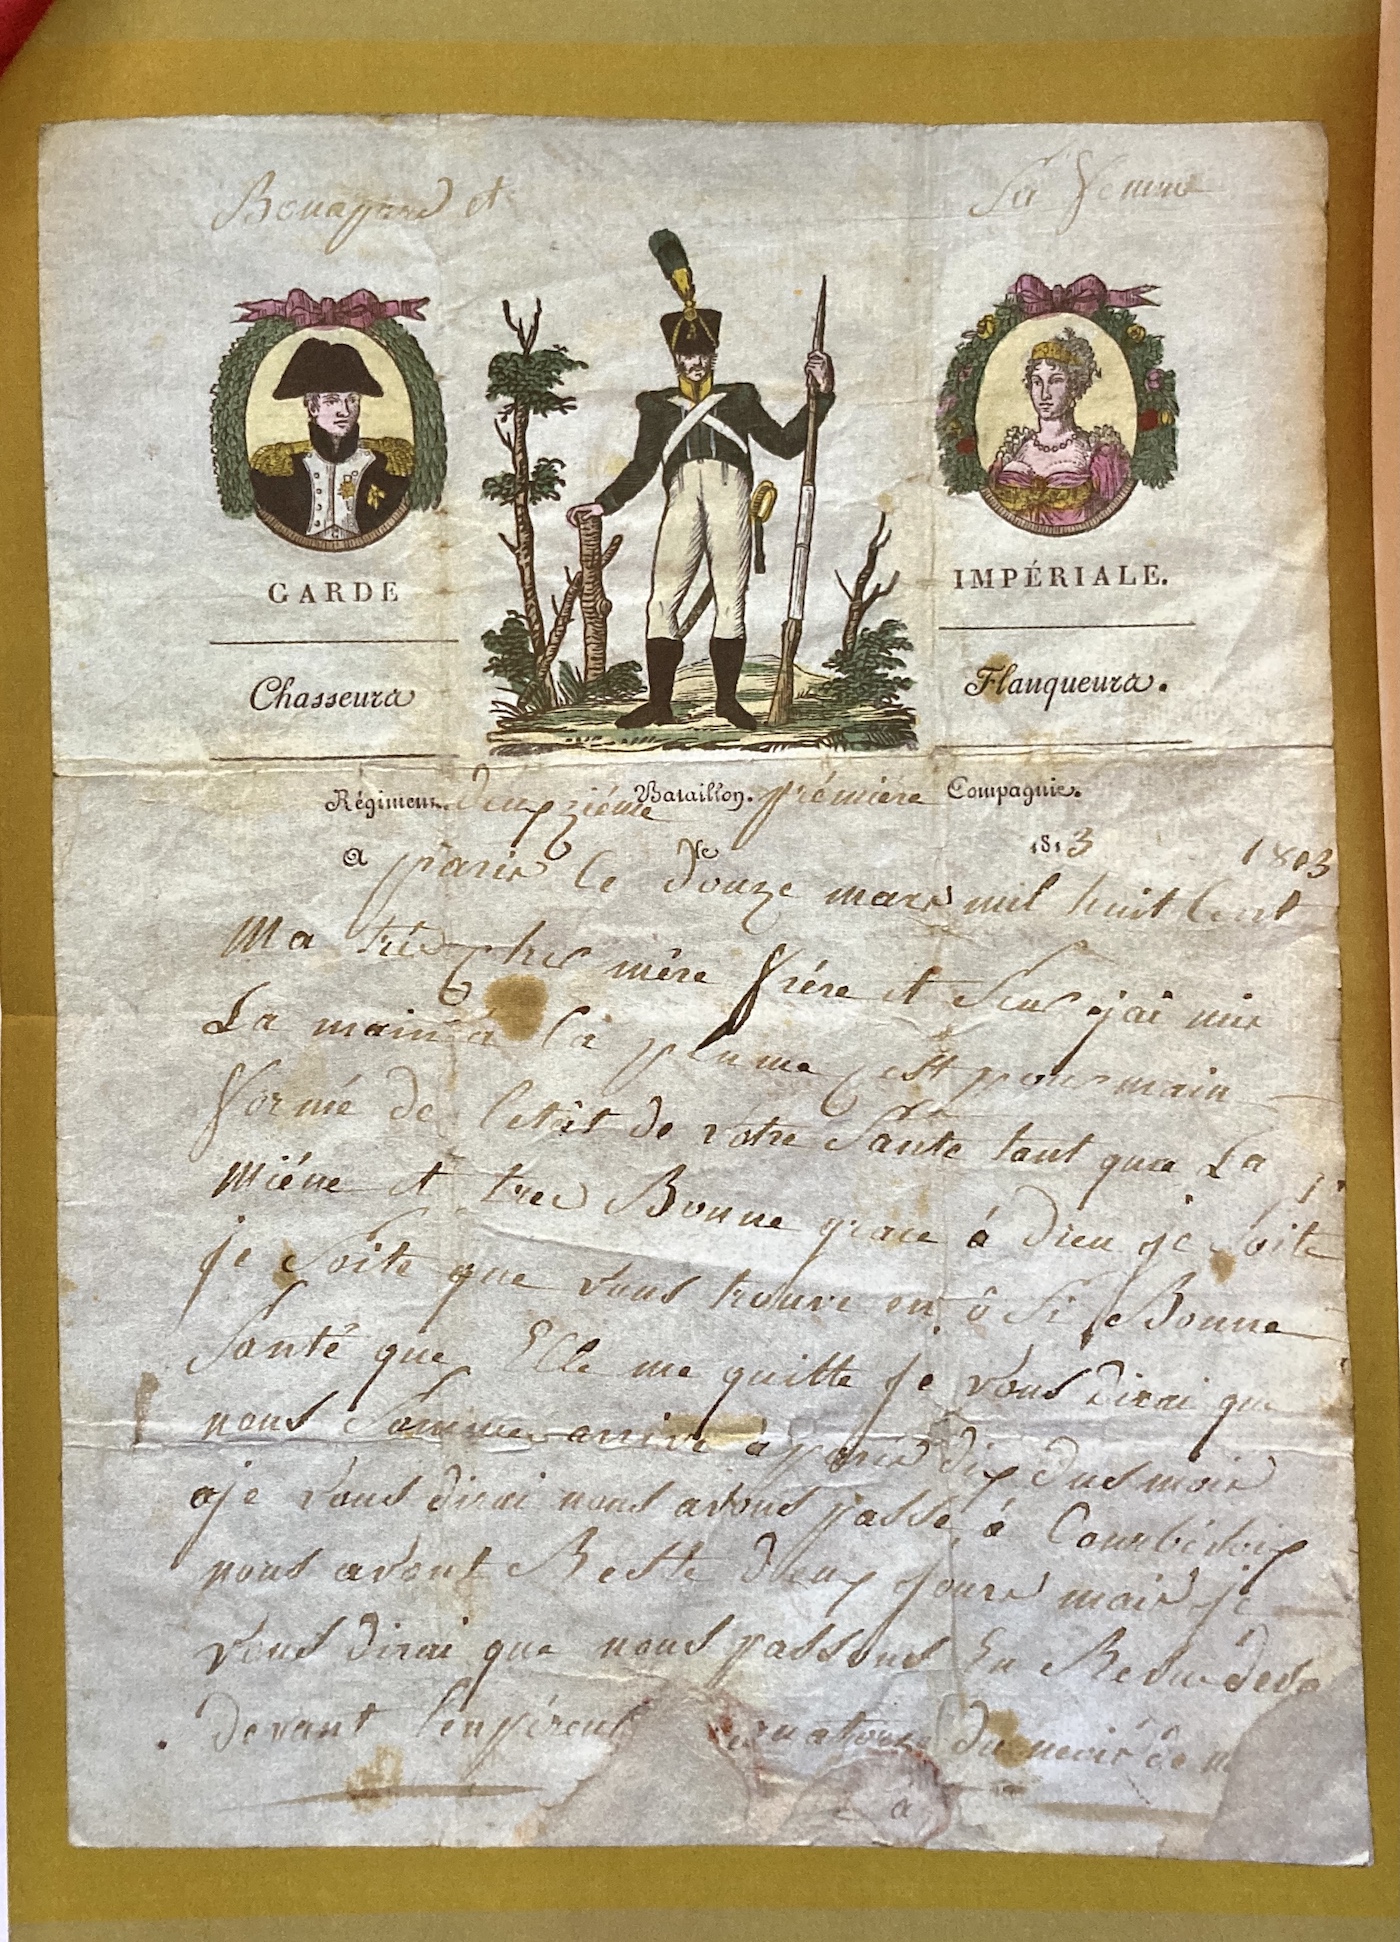 Bonapard et
Sa femme
GARDE
IMPÉRIALE.
Chasseurs
Flanqueurs.
Régiment. deuxziéme Bataillon. prémiére Compagnie.
a paris le douze mars mil huit Cent 1813 1803
Ma trés cher mére frére et Seur j'ai mis
La main a la plume cest pour main
formé de letat de votre Santé tant que La
miéne et tres Bonne grace á dieu je soite
je soite que vous trouve en ô si Bonne
Santé que Elle me quitte je vous dirai que
nous Somme arrive a paris dix dus mois
je vous dirai nous avons passé á Courbevoix
nous avont Resté deux jours mais je
vous dirai que nous passons En Revue
devant lenpereur du mois de